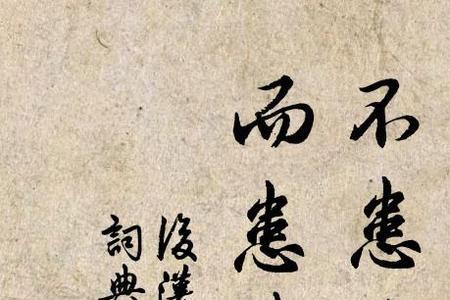 不患
而患
後漢
詞典